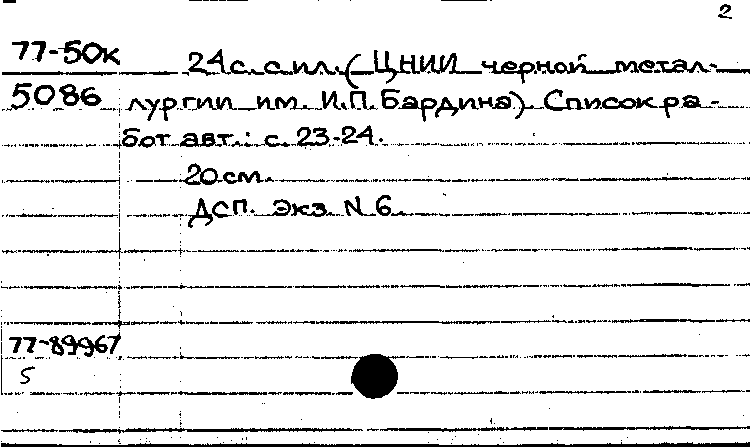 2
77-50к 24 с. с ил. (ЦНИИ черной метал-
5086 лургии им. И.П. Бардина). Список ра-
бот авт.: с. 23-24.
20 см.
ДСП. Экз. N 6.
77-89967
5